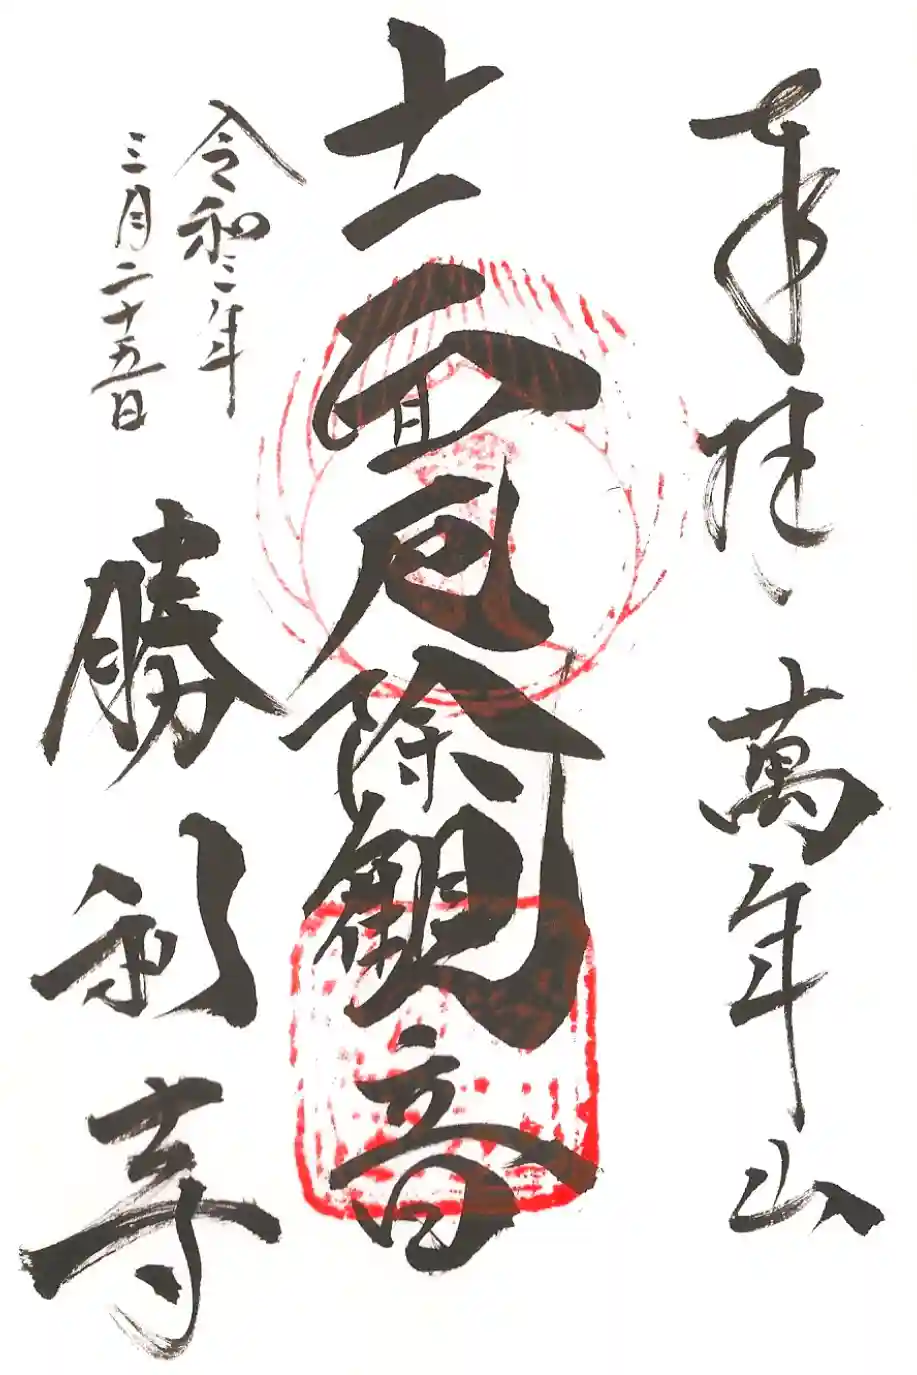 奉拝 萬年山
十一面厄除観音
令和三年
三月二十五日
勝利寺